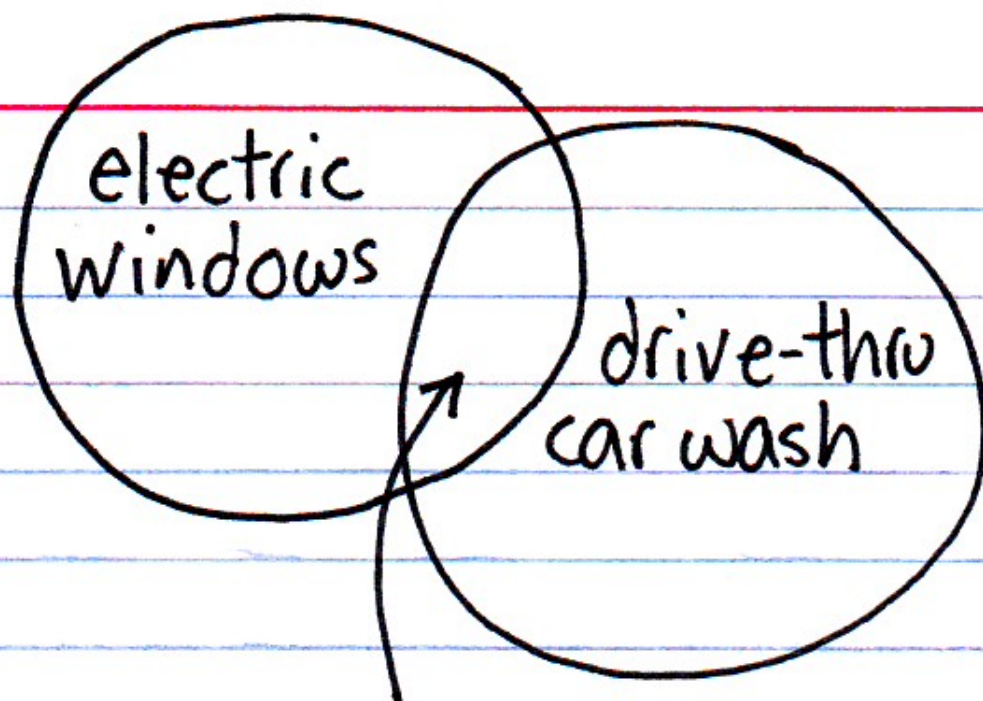 electric
windows
drive-thru
car wash